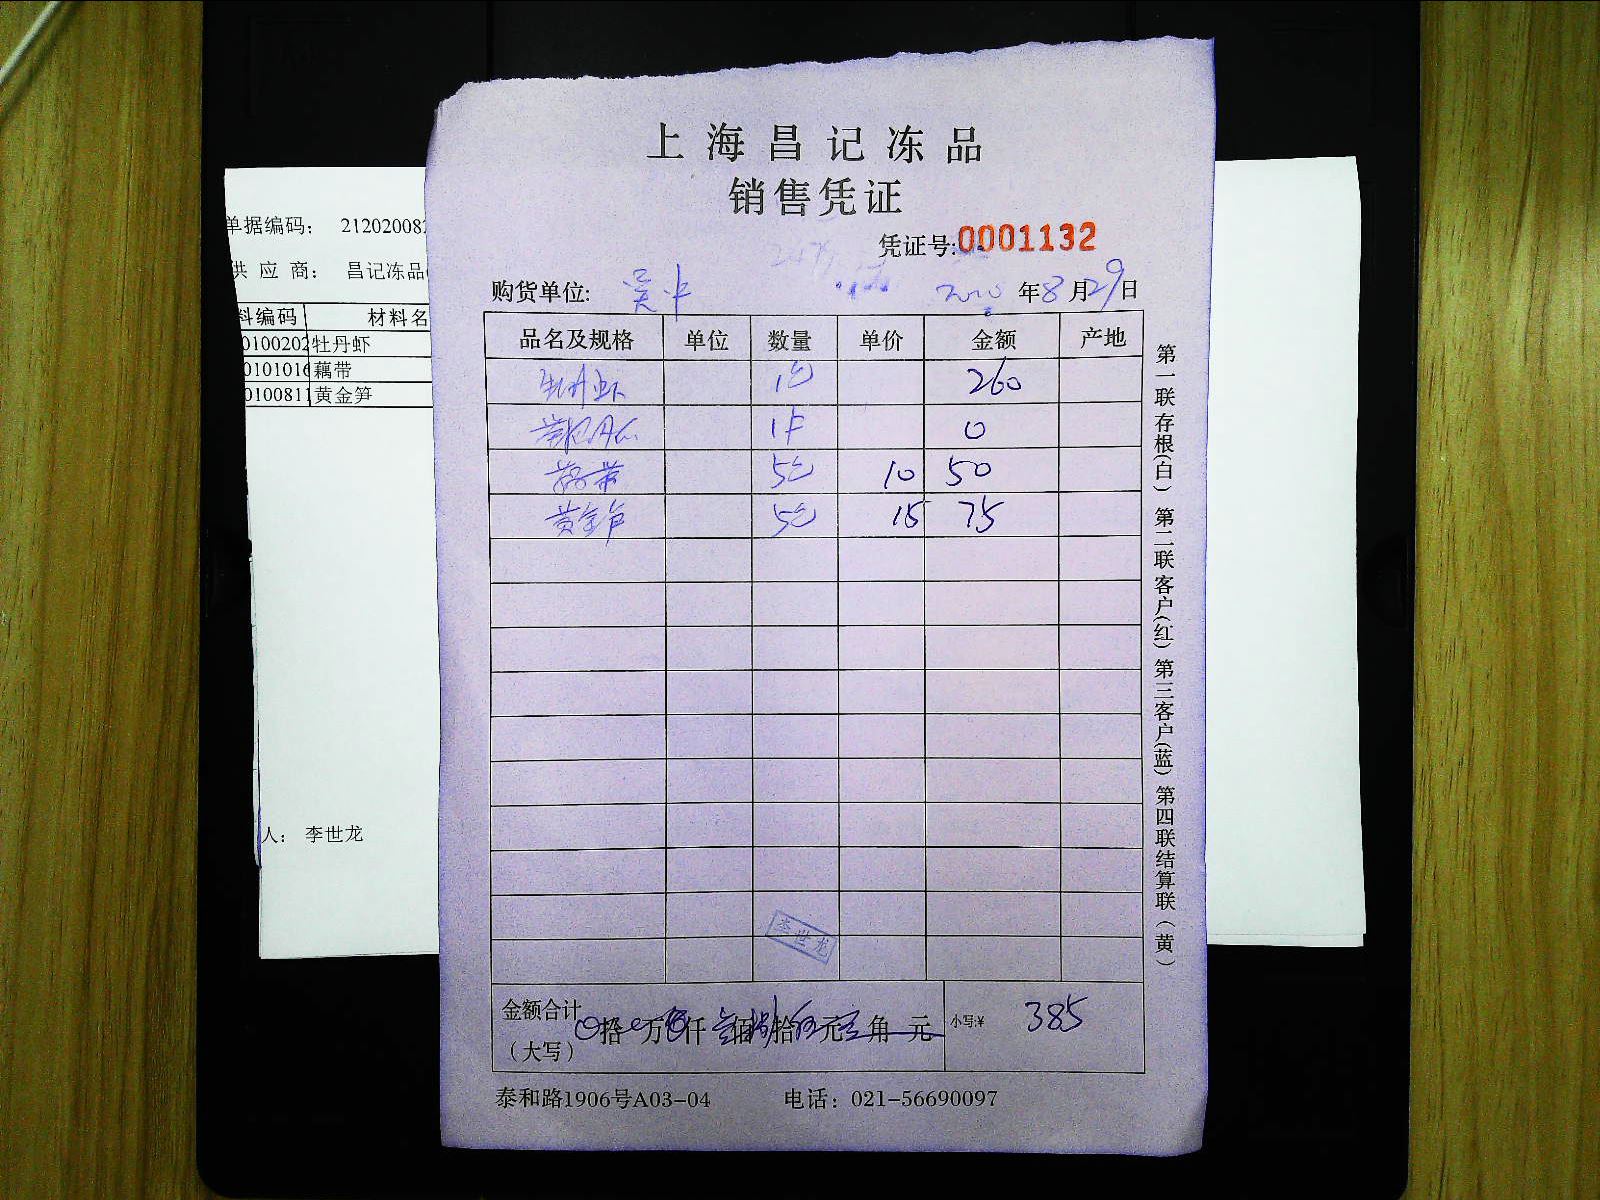 上海昌记冻品
销售凭证
凭证号:0001132
购货单位: 吴中 2020年8月29日
品名及规格 单位 数量 单价 金额 产地
牡丹虾 1包 260
1件 0
藕带 5包 10 50
黄金笋 5包 15 75
李世龙
金额合计(大写) 拾 万 仟 佰 拾 元 角 元 小写:¥ 385
泰和路1906号A03-04 电话：021-56690097
第一联存根(白) 第二联客户(红) 第三客户(蓝) 第四联结算联(黄)
单据编码： 21202008
供 应 商： 昌记冻品
料编码 材料名
0100202 牡丹虾
0101016 藕带
0100811 黄金笋
人： 李世龙